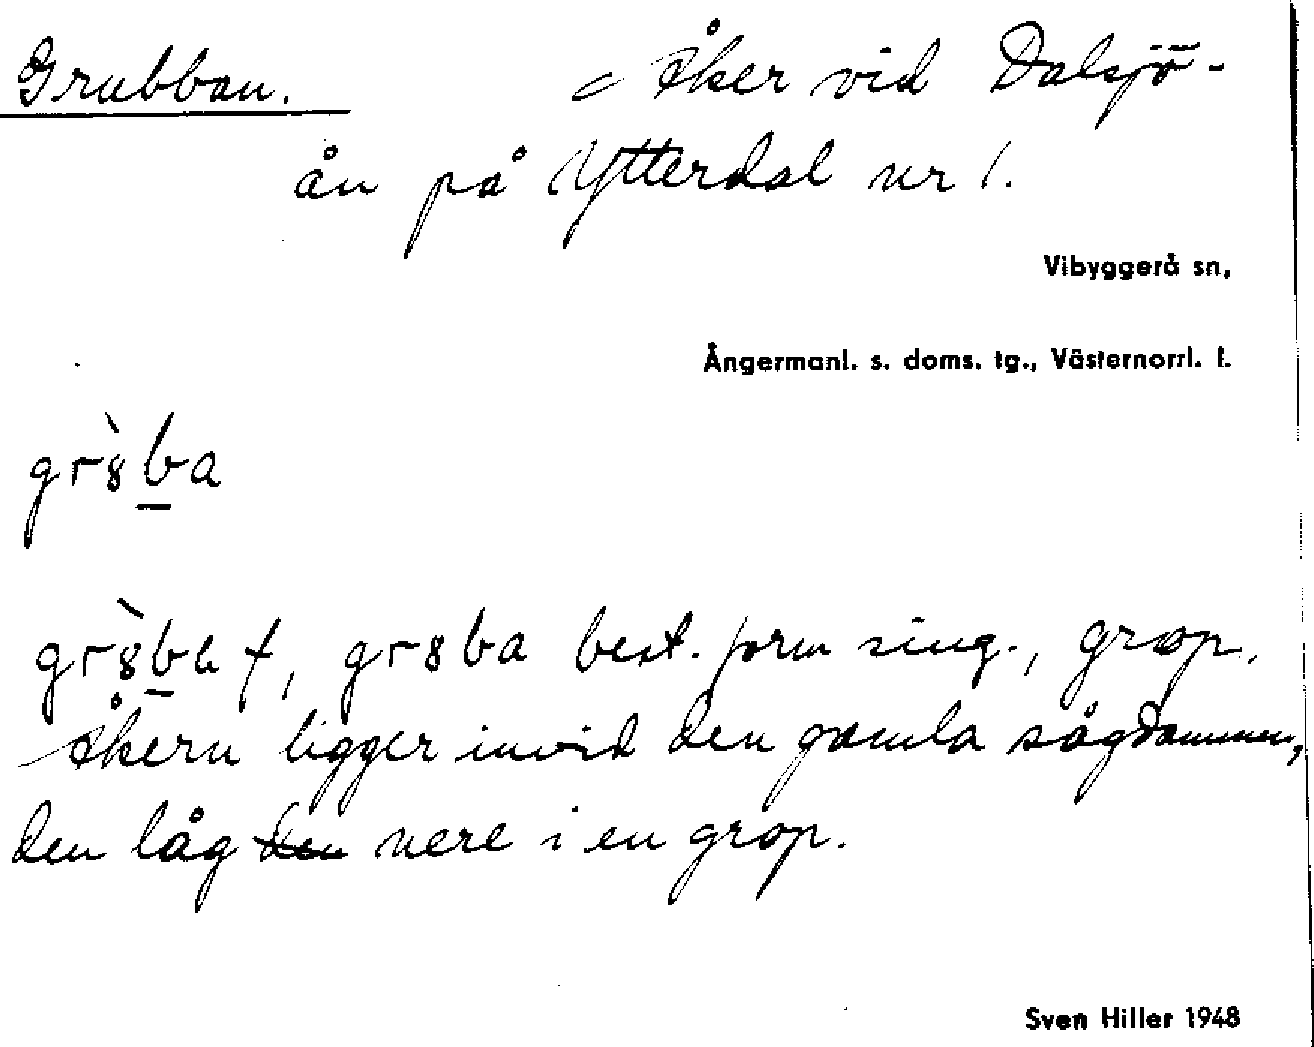 Grubban. Åker vid Dalsjö-
ån på Ytterdal nr 1.
Vibyggerå sn,
Ångermanl. s. doms. tg., Västernorrl. l.
gr8̀b̲a
gr8̀b̲a f, gr8ba best. form sing., grop.
Åkern ligger invid den gamla sågdammen,
den låg ~~den~~ nere i en grop.
Sven Hiller 1948